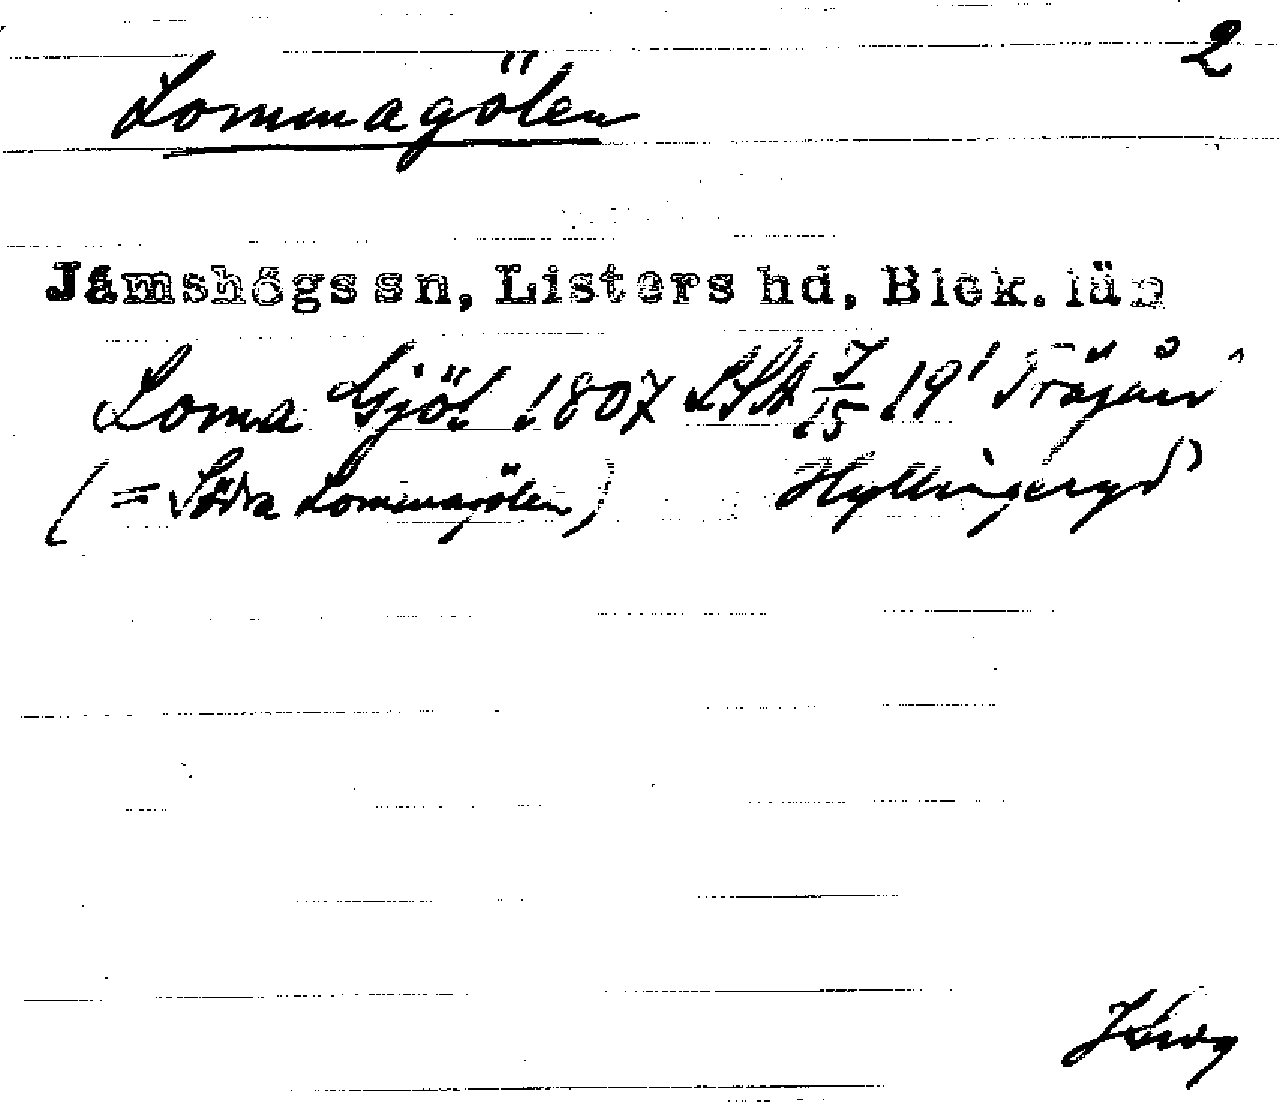 2
Lommagölen
Jämshögs sn, Listers hd, Blek. län
Loma Gjöl 1807 LSA J/15 19'
(= Södra Lommagölen) Hyllingeryd